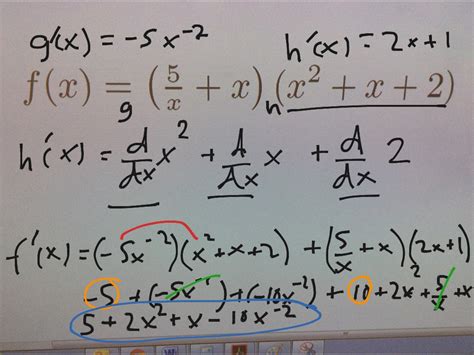 g'(x) = -5x⁻²
h'(x) = 2x+1
f(x) = (5/x + x)(x² + x + 2)
g h
h'(x) = d/dx x² + d/dx x + d/dx 2
f'(x) = (-5x⁻²)(x²+x+2) + (5/x + x)(2x+1)
-5 + (-5x⁻¹) + (-10x⁻²) + 10 + 2x² + 5/x + x
5 + 2x² + x - 10x⁻²